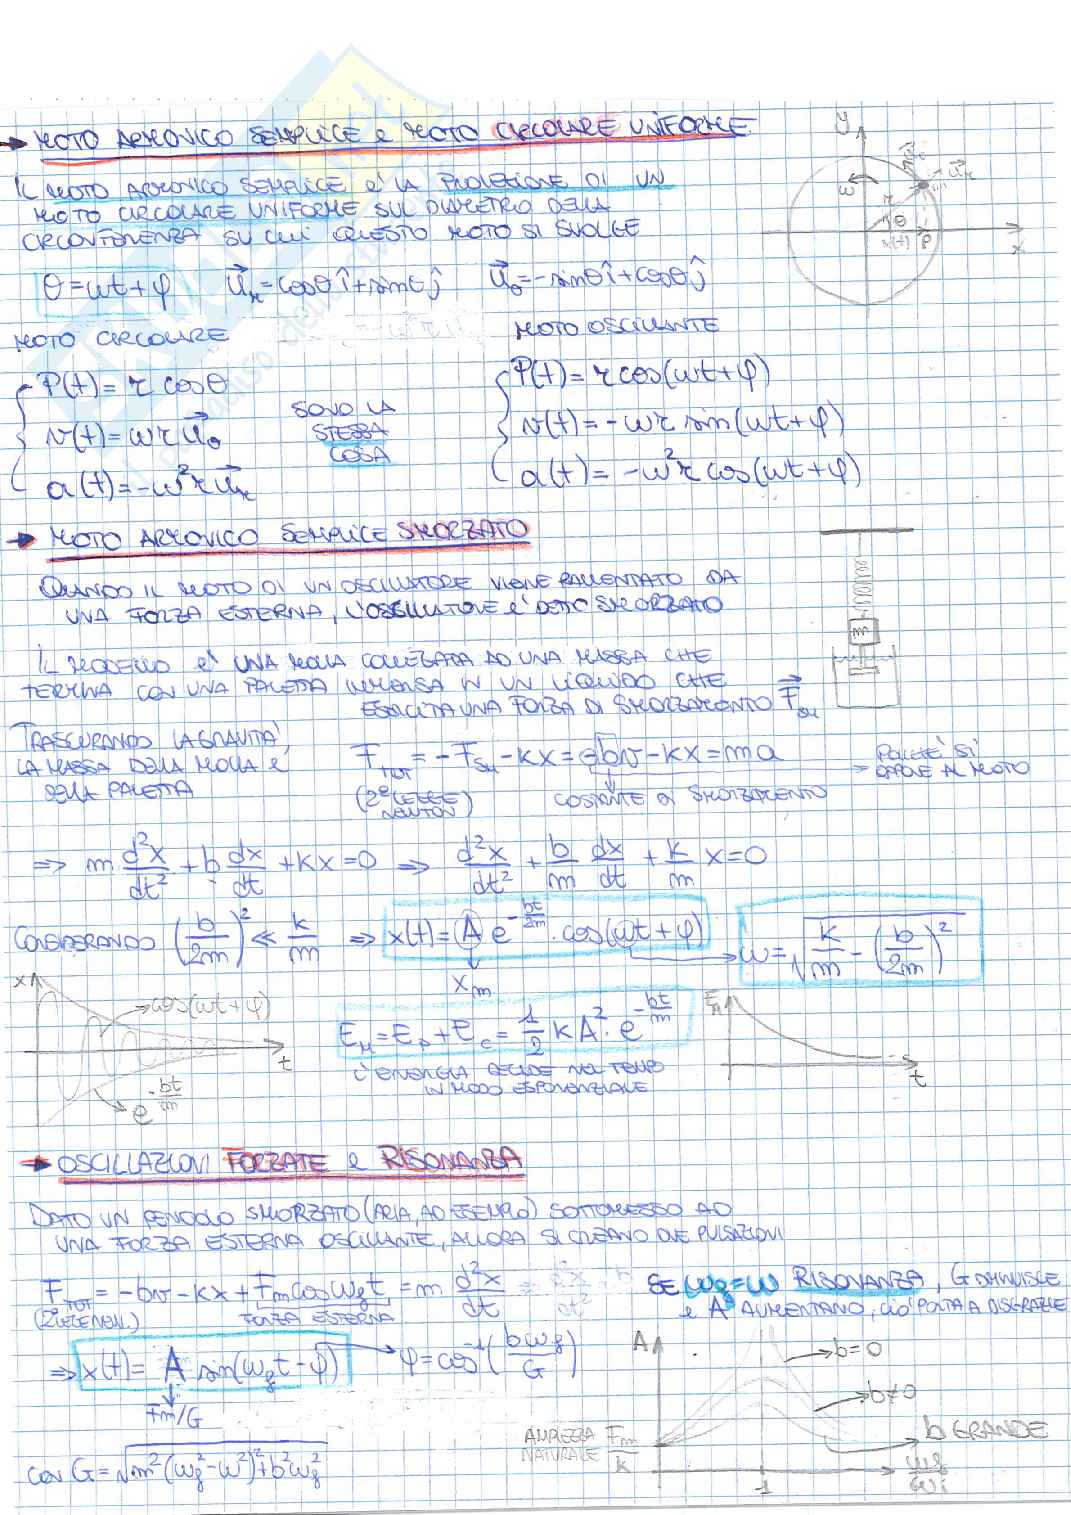 → MOTO ARMONICO SEMPLICE e MOTO CIRCOLARE UNIFORME
IL MOTO ARMONICO SEMPLICE E' LA PROIEZIONE DI UN
MOTO CIRCOLARE UNIFORME SUL DIAMETRO DELLA
CIRCONFERENZA SU CUI QUESTO MOTO SI SVOLGE
y
ω
r
θ
x(t)
P
x
θ = ωt + φ
u⃗r = cosθ î + sinθ ĵ
u⃗θ = -sinθ î + cosθ ĵ
MOTO CIRCOLARE
MOTO OSCILLANTE
P(t) = r cosθ
P(t) = r cos(ωt + φ)
SONO LA
STESSA
COSA
v(t) = ωr u⃗θ
v(t) = -ωr sin(ωt + φ)
a(t) = -ω²r u⃗r
a(t) = -ω²r cos(ωt + φ)
→ MOTO ARMONICO SEMPLICE SMORZATO
QUANDO IL MOTO DI UN OSCILLATORE VIENE RALLENTATO DA
UNA FORZA ESTERNA, L'OSCILLATORE E' DETTO SMORZATO
m
IL MODELLO E' UNA MOLLA COLLEGATA AD UNA MASSA CHE
TERMINA CON UNA PALETTA IMMERSA IN UN LIQUIDO CHE
ESERCITA UNA FORZA DI SMORZAMENTO F⃗SM
TRASCURANDO LA GRAVITA',
LA MASSA DELLA MOLLA E
DELLA PALETTA
FTOT = -FSM - kx = -bv - kx = ma
(2° LEGGE
NEWTON)
COSTANTE DI SMORZAMENTO
→ POICHE' SI
OPPONE AL MOTO
⇒ m d²x/dt² + b dx/dt + kx = 0 ⇒ d²x/dt² + b/m dx/dt + k/m x = 0
CONSIDERANDO (b/2m)² ≪ k/m ⇒ x(t) = A e^(-bt/2m) · cos(ωt + φ) → ω = √(k/m - (b/2m)²)
xm
x
cos(ωt + φ)
t
e^(-bt/m)
EM = EP + EC = 1/2 k A² · e^(-bt/m)
L'ENERGIA DECADE NEL TEMPO
IN MODO ESPONENZIALE
EM
t
→ OSCILLAZIONI FORZATE e RISONANZA
DATO UN PENDOLO SMORZATO (ARIA, AD ESEMPIO) SOTTOMESSO AD
UNA FORZA ESTERNA OSCILLANTE, ALLORA SI CREANO DUE PULSAZIONI
FTOT = -bv - kx + Fm cos ωf t = m d²x/dt
(2° LEGGE NEW.)
FORZA ESTERNA
SE ωf = ω RISONANZA, G DIMINUISCE
e A AUMENTANO, CIO' PORTA A DISGRAZIE
⇒ x(t) = A sin(ωf t - φ) → φ = cos⁻¹(bωf/G)
Fm/G
CON G = √(m²(ωf² - ω²)² + b²ωf²)
A
b = 0
b ≠ 0
b GRANDE
AMPIEZZA
NATURALE
Fm/k
1
ωf/ωi